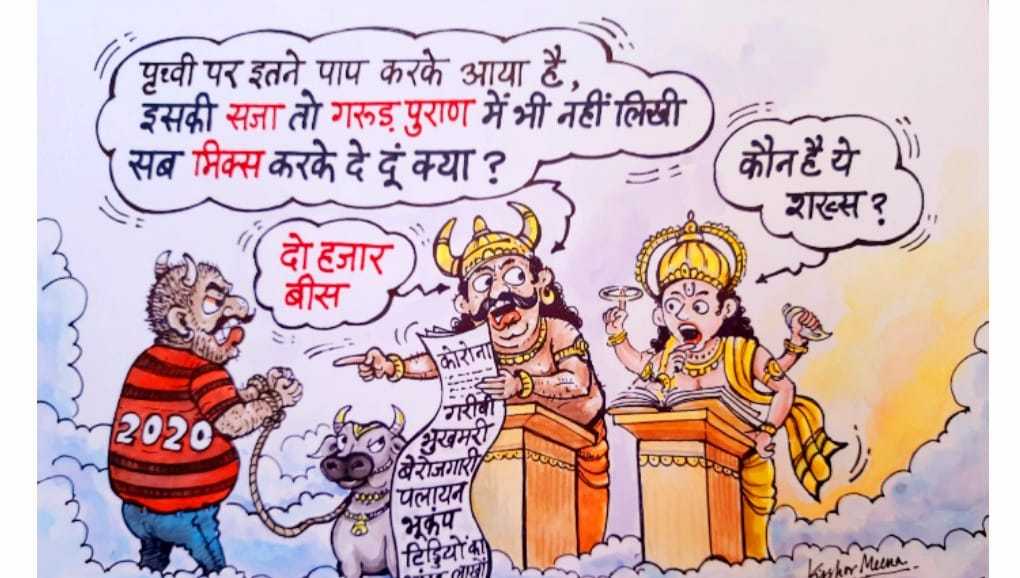 पृथ्वी पर इतने पाप करके आया है,
इसकी सजा तो गरुड़ पुराण में भी नहीं लिखी
सब मिक्स करके दे दूं क्या ?
कौन है ये
शख्स ?
दो हजार
बीस
2020
कोरोना
गरीबी
भुखमरी
बेरोजगारी
पलायन
भूकंप
टिड्डियों का
लाखों
Kishor Meena